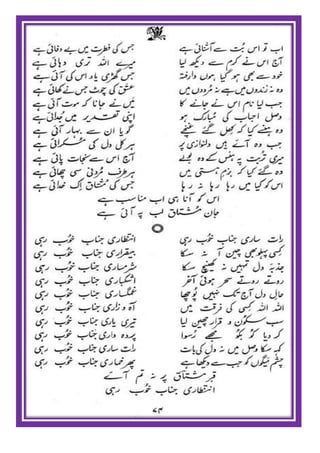 اب تو اس بُت سے آشنائی ہے جس کی فطرت میں بے وفائی ہے
آج اس نے کرم سے دیکھ لیا میرے اللہ تری دہائی ہے
خود سے بھی ہو گیا ہوں وارفتہ جس گھڑی یاد اس کی آئی ہے
وہ نہ زندوں میں ہے نہ مُردوں میں عشق کی چوٹ جس نے کھائی ہے
جب لیا نام اس نے جانے کا میں نے جانا کہ موت آئی ہے
وصل احباب کی مبارک ہو اپنی تقدیر میں جدائی ہے
وہ ہنسے کیا کہ کھل گئے غنچے گویا ان سے بہار آئی ہے
جب وہ آئے ہیں دلنوازی پر ہر کلی دل کی مسکرائی ہے
میری تربت پہ ہنس کے وہ بولے آج اس سے نجات پائی ہے
وہ گئے کیا کہ بزم ہستی میں ہر طرف مُردنی سی چھائی ہے
اس کو کیا میں رہا رہا نہ رہا جس کی مشتاق اک خدائی ہے
اس کو آنا ہی اب مناسب ہے
جان مشتاق لب پہ آئی ہے
رات ساری جناب خوب رہی انتظاری جناب خوب رہی
کسی پہلو بھی چین آ نہ سکا بیقراری جناب خوب رہی
جذبۂ دل تمہیں نہ کھینچ سکا شرمساری جناب خوب رہی
روتے روتے سحر ہوئی آخر اشکباری جناب خوب رہی
حال دل آج تک نہیں پوچھا غمگساری جناب خوب رہی
اللہ اللہ کسی کی فرقت میں آہ و زاری جناب خوب رہی
سب سکون و قرار چھین لیا تیری یاری جناب خوب رہی
کر دیا کو بکو مجھے رُسوا پردہ داری جناب خوب رہی
کہہ سکا وصل میں نہ دل کی بات رات ساری جناب خوب رہی
چشم میگوں کو جب سے دیکھا ہے پھر خماری جناب خوب رہی
قبر مشتاق پر نہ تم آئے
انتظاری جناب خوب رہی
۷۴